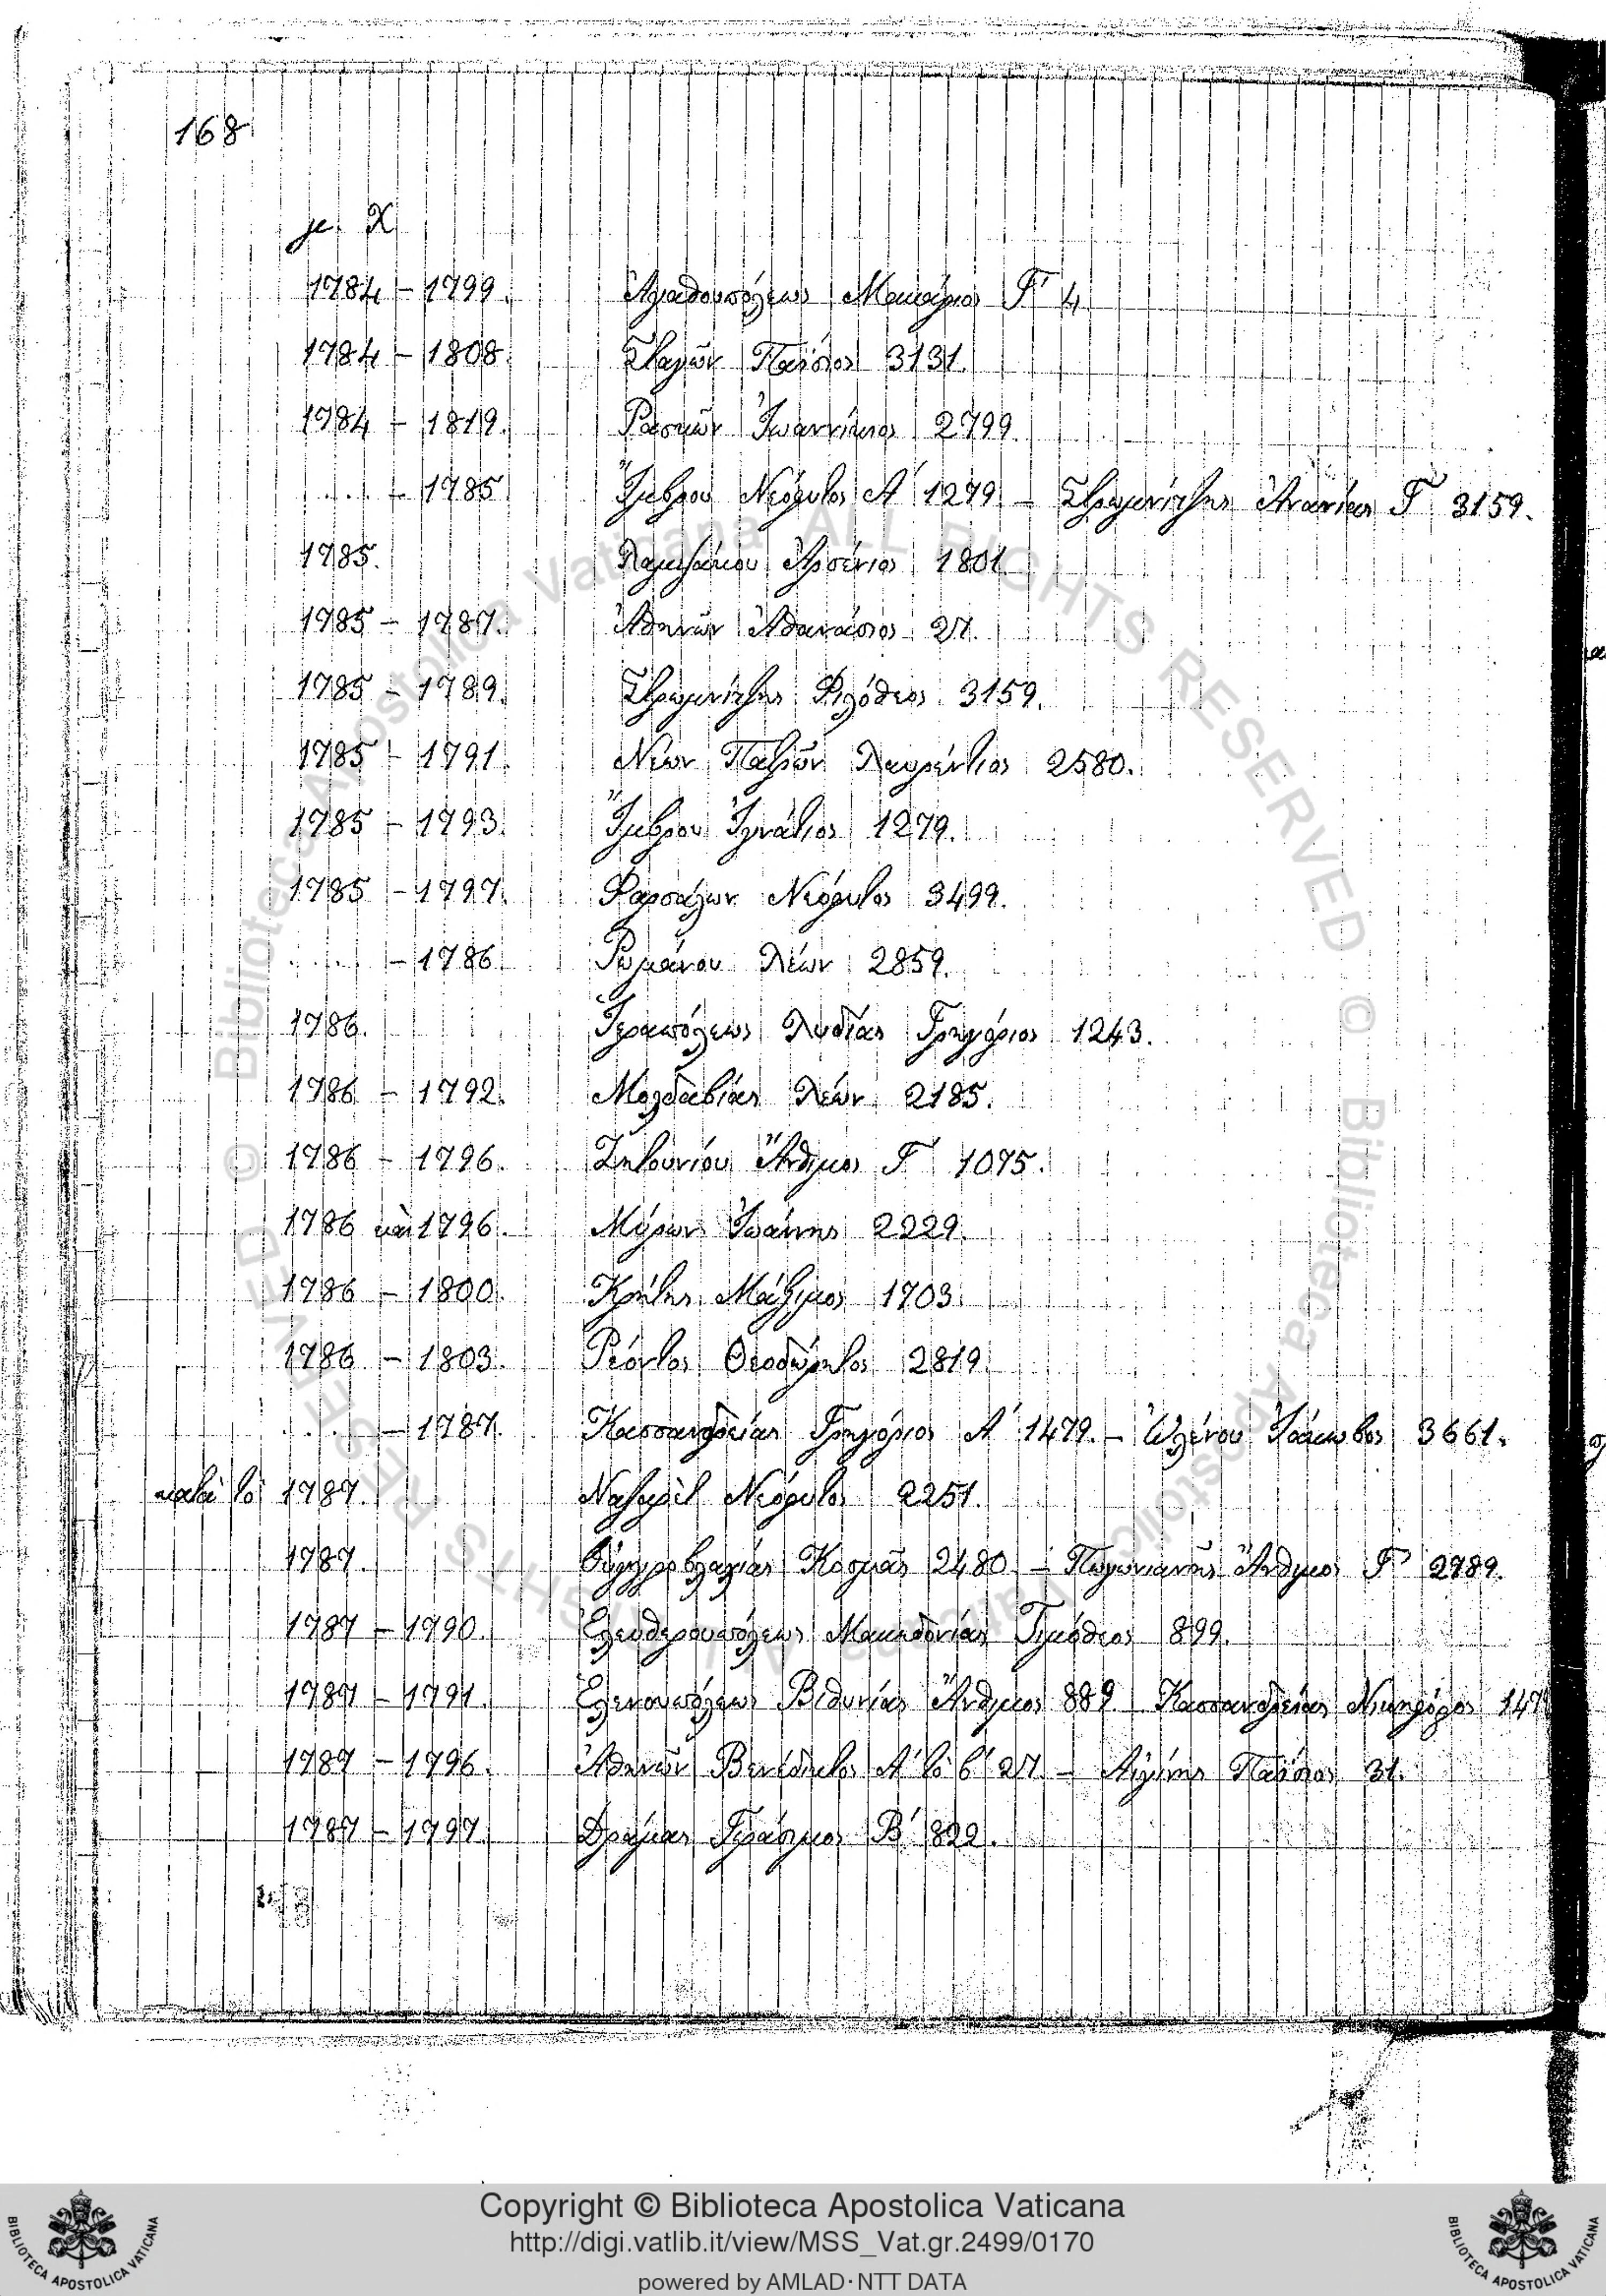 168
μ. Χ.
1784 – 1799. Ἀγαθουπόλεως Μακάριος Γ΄ 4
1784 – 1808. Σταγῶν Παΐσιος 3131.
1784 – 1819. Ῥασκῶν Ἰωαννίκιος 2799.
..... – 1785 Ἴμβρου Νεόφυτος Α΄ 1279 – Στρωμνίτζης Ἀνανίας Γ΄ 3159.
1785. Λαμψάκου Ἀρσένιος 1801.
1785 – 1787. Ἀθηνῶν Ἀθανάσιος 27.
1785 – 1789. Στρωμνίτζης Φιλόθεος 3159.
1785 – 1791. Νέων Πατρῶν Λαυρέντιος 2580.
1785 – 1793. Ἴμβρου Ἰγνάτιος 1279.
1785 – 1797. Φαρσάλων Νεόφυτος 3499.
..... – 1786 Ῥωμάνου Λέων 2859.
1786. Ἱεραπόλεως Λυδίας Γρηγόριος 1243.
1786 – 1792. Μολδαβίας Λέων 2185.
1786 – 1796. Ζητουνίου Ἄνθιμος Γ΄ 1075.
1786 καὶ 1796. Μύρων Ἰωάννης 2229.
1786 – 1800. Κρήτης Μάξιμος 1703.
1786 – 1803. Ῥέοντος Θεοδώρητος 2819.
..... – 1787. Κασσανδρείας Γρηγόριος Α΄ 1479. – Ὠλένου Ἰάκωβος 3661.
κατὰ τὸ 1787. Ναζαρὲτ Νεόφυτος 2251.
1787. Οὑγγροβλαχίας Κοσμᾶς 2480 – Πωγωνιανῆς Ἄνθιμος Γ΄ 2789.
1787 – 1790. Ἐλευθερουπόλεως Μακεδονίας Τιμόθεος 899.
1787 – 1791. Ἑλενουπόλεως Βιθυνίας Ἄνθιμος 889 – Κασσανδρείας Νικηφόρος 147
1787 – 1796. Ἀθηνῶν Βενέδικτος Α΄ τὸ β΄ 27 – Αἰγίνης Παΐσιος 31.
1787 – 1797. Δράμας Γεράσιμος Β΄ 822.
Copyright © Biblioteca Apostolica Vaticana
http://digi.vatlib.it/view/MSS_Vat.gr.2499/0170
powered by AMLAD·NTT DATA